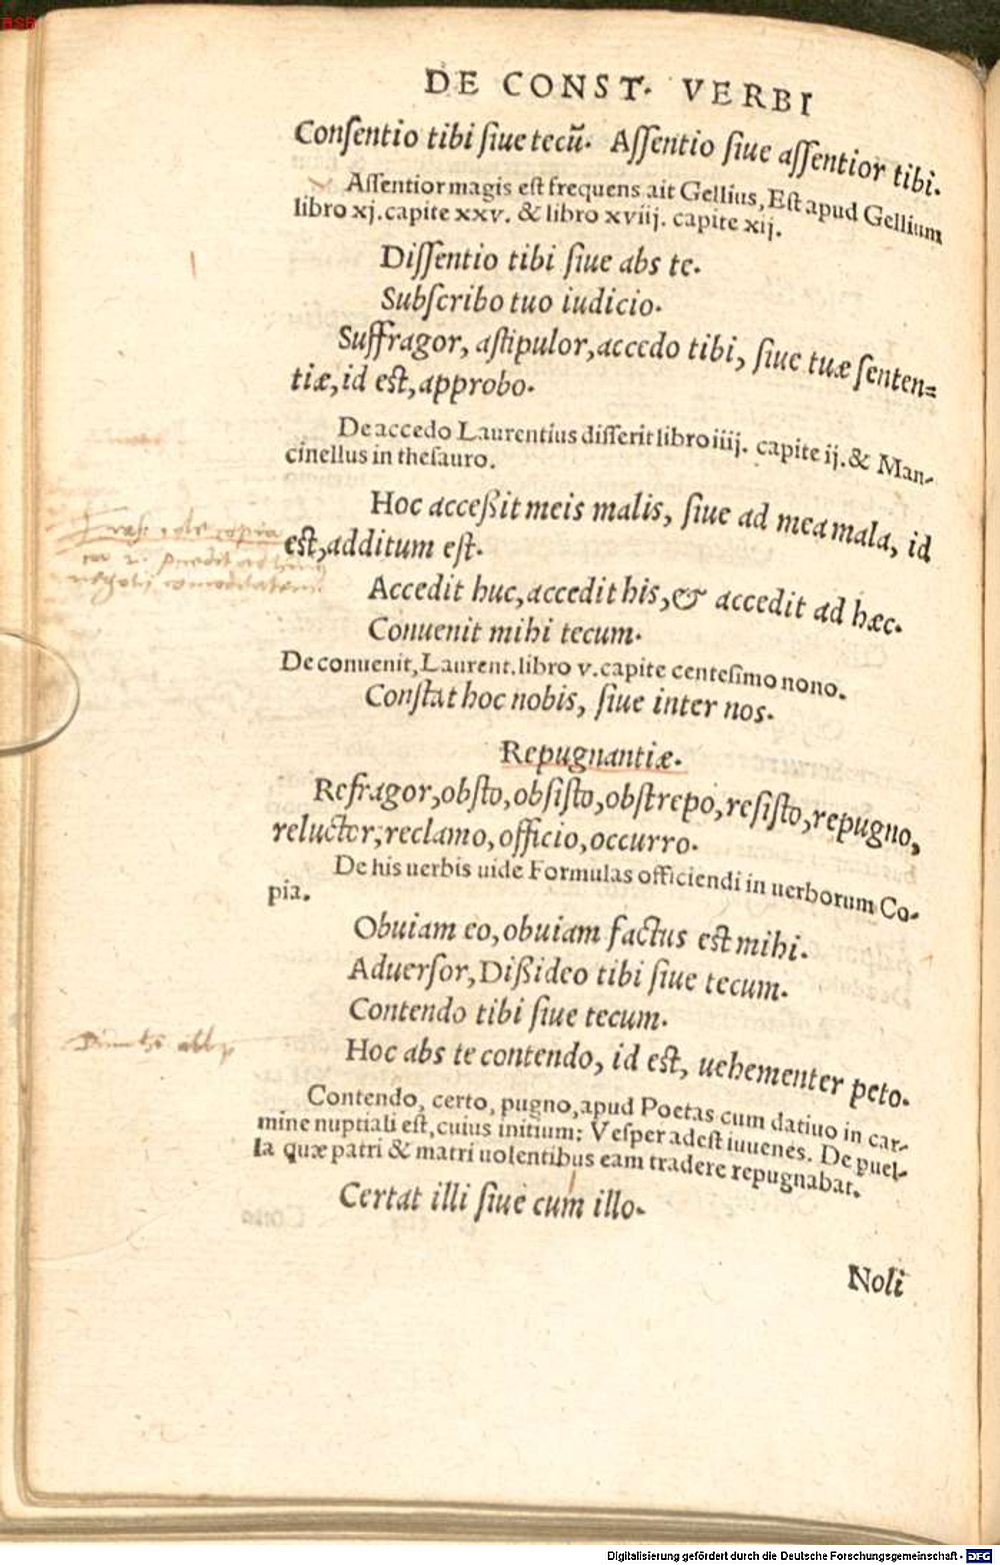 BSB
DE CONST. VERBI
Conſentio tibi ſiue tecū. Aſſentio ſiue aſſentior tibi.
Aſſentior magis eſt frequens ait Gellius, Eſt apud Gellium
libro xj. capite xxv. & libro xviij. capite xij.
Diſſentio tibi ſiue abs te.
Subſcribo tuo iudicio.
Suffragor, aſtipulor, accedo tibi, ſiue tuæ ſenten=
tiæ, id eſt, approbo.
De accedo Laurentius diſſerit libro iiij. capite ij. & Man-
cinellus in theſauro.
Hoc acceßit meis malis, ſiue ad mea mala, id
eſt, additum eſt.
Accedit huc, accedit his, & accedit ad hæc.
Conuenit mihi tecum.
De conuenit, Laurent. libro v. capite centeſimo nono.
Conſtat hoc nobis, ſiue inter nos.
Repugnantiæ.
Refragor, obſto, obſiſto, obſtrepo, reſiſto, repugno,
reluctor, reclamo, officio, occurro.
De his uerbis uide Formulas officiendi in uerborum Co-
pia.
Obuiam eo, obuiam factus eſt mihi.
Aduerſor, Dißideo tibi ſiue tecum.
Contendo tibi ſiue tecum.
Hoc abs te contendo, id eſt, uehementer peto.
Contendo, certo, pugno, apud Poetas cum datiuo in car-
mine nuptiali eſt, cuius initium: Veſper adeſt iuuenes. De puel-
la quæ patri & matri uolentibus eam tradere repugnabat.
Certat illi ſiue cum illo.
Noli
Digitalisierung gefördert durch die Deutsche Forschungsgemeinschaft - DFG